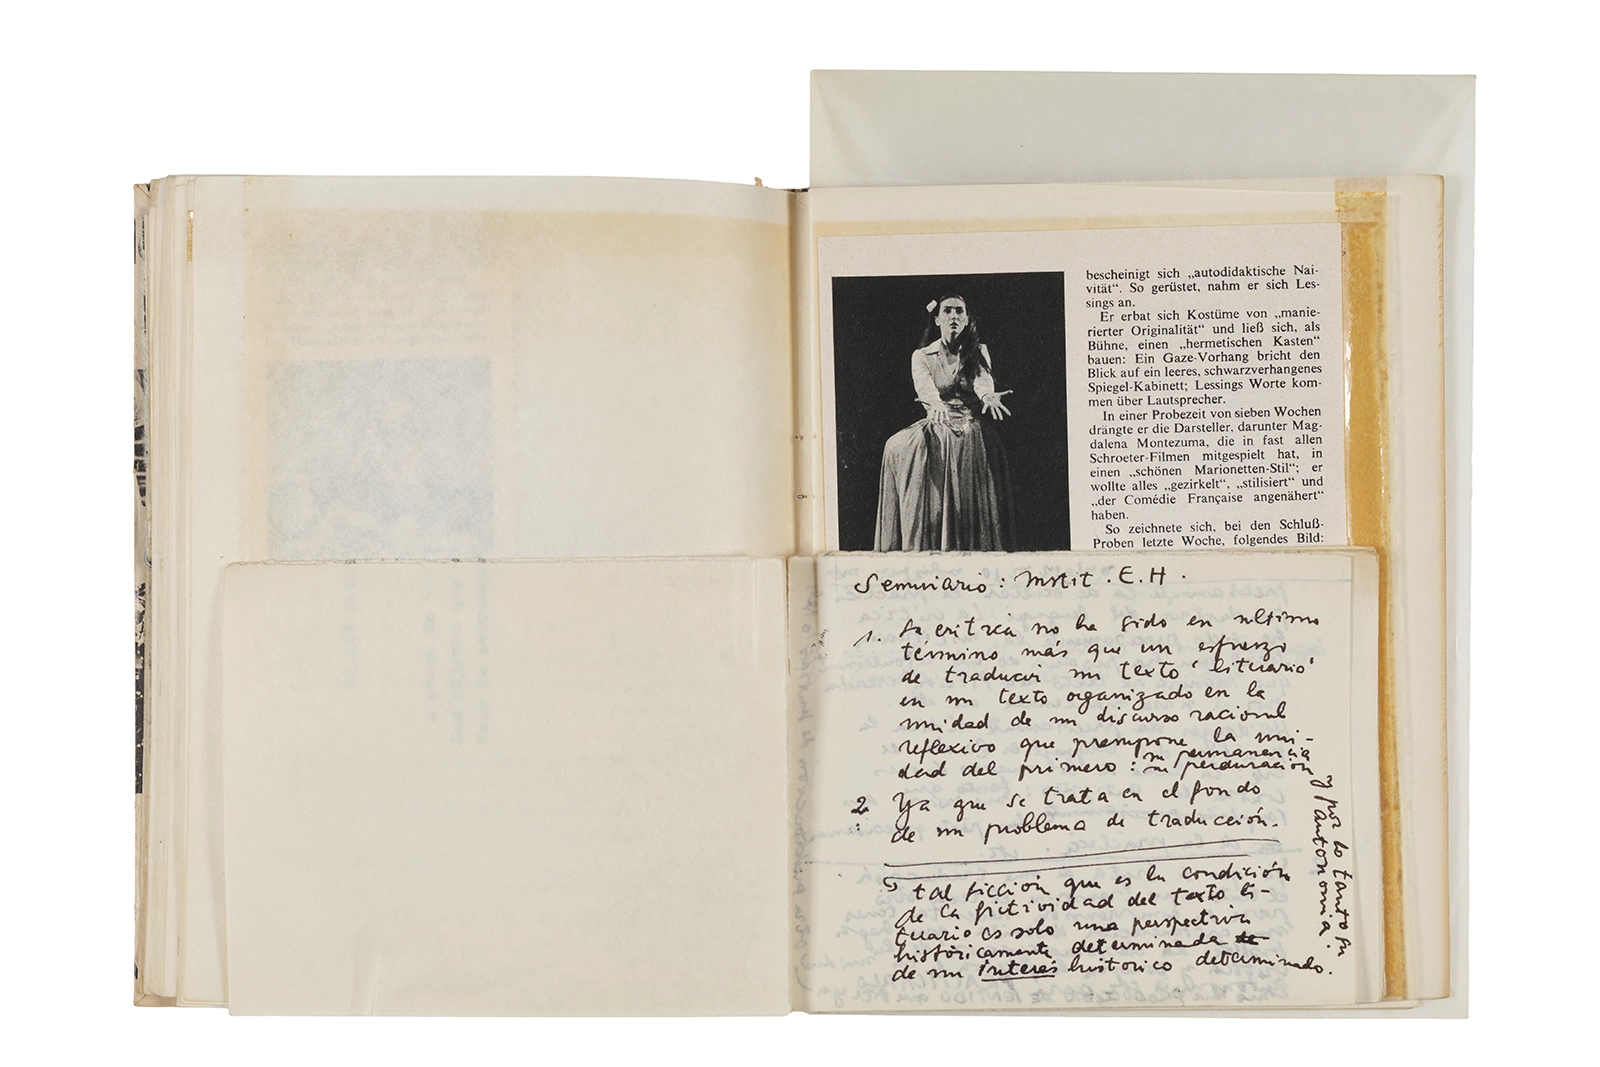 bescheinigt sich „autodidaktische Nai-
vität“. So gerüstet, nahm er sich Les-
sings an.
Er erbat sich Kostüme von „manie-
rierter Originalität“ und ließ sich, als
Bühne, einen „hermetischen Kasten“
bauen: Ein Gaze-Vorhang bricht den
Blick auf ein leeres, schwarzverhangenes
Spiegel-Kabinett; Lessings Worte kom-
men über Lautsprecher.
In einer Probezeit von sieben Wochen
drängte er die Darsteller, darunter Mag-
dalena Montezuma, die in fast allen
Schroeter-Filmen mitgespielt hat, in
einen „schönen Marionetten-Stil“; er
wollte alles „gezirkelt“, „stilisiert“ und
„der Comédie Française angenähert“
haben.
So zeichnete sich, bei den Schluß-
Proben letzte Woche, folgendes Bild:
Seminario: Instit. E.H.
1. La crítica no ha sido en ultimo
término más que un esfuerzo
de traducir un texto 'literario'
en un texto organizado en la
unidad de un discurso racional
reflexivo que presupone la uni-
dad del primero: su permanencia
su perduración
y por lo tanto su
autonomía.
2. Ya que se trata en el fondo
de un problema de traducción.
tal ficción que es la condición
de la fictividad del texto li-
terario es solo una perspectiva
históricamente determinada de
de un interés historico determinado.